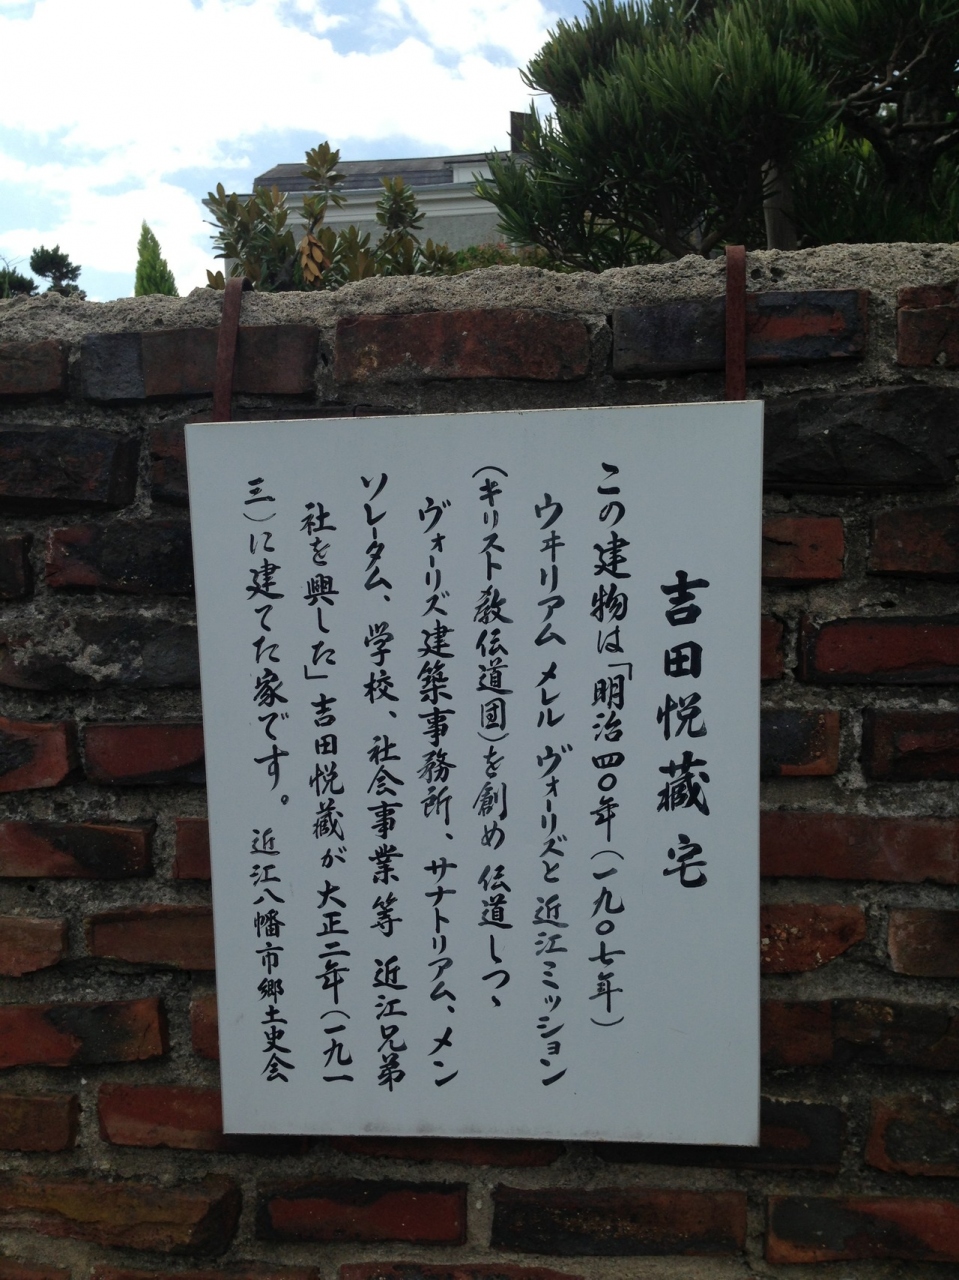 吉田悦蔵宅
この建物は「明治四〇年(一九〇七年)
ウヰリアム メレル ヴォーリズと近江ミッション
(キリスト教伝道団)を創め 伝道しつゝ
ヴォーリズ建築事務所、サナトリアム、メン
ソレータム、学校、社会事業等 近江兄弟
社を興した」吉田悦蔵が大正二年(一九一
三)に建てた家です。 近江八幡市郷土史会